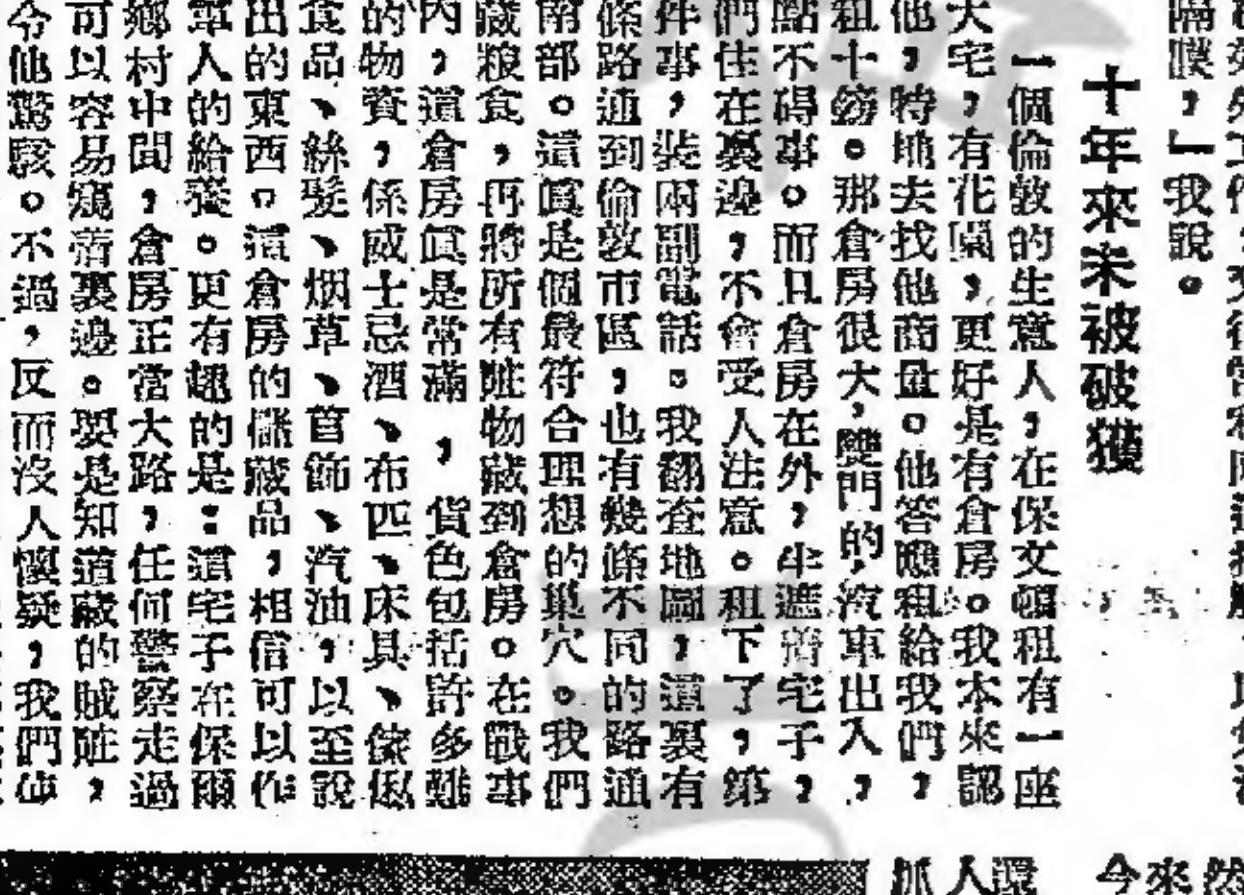 隔膜，」我說。
十年來未被破獲
一個倫敦的生意人，在保文頓租有一座
大宅，有花園，更好是有倉房。我本來認
他，特地去找他商量。他答應租給我們，
租十鎊。那倉房很大，雙門的，汽車出入，
點不碍事。而且倉房在外，半遮着宅子，
們住在裏邊，不會受人注意。租下了，第
件事，裝兩副電話。我翻查地圖，這裏有
條路通到倫敦市區，也有幾條不同的路通
南部。這眞是個最符合理想的巢穴。我們
藏粮食，再將所有贓物藏到倉房。在戰事
內，這倉房眞是常滿，貨色包括許多難
的物資，係威士忌酒、布匹、床具、傢俬
食品、絲髮、烟草、首飾、汽油，以至說
出的東西。這倉房的儲藏品，相信可以作
軍人的給養。更有趣的是：這宅子在保爾
鄉村中間，倉房正當大路，任何警察走過
可以容易窺着裏邊。要是知道藏的賊贓，
令他驚駭。不過，反而沒人懷疑，我們